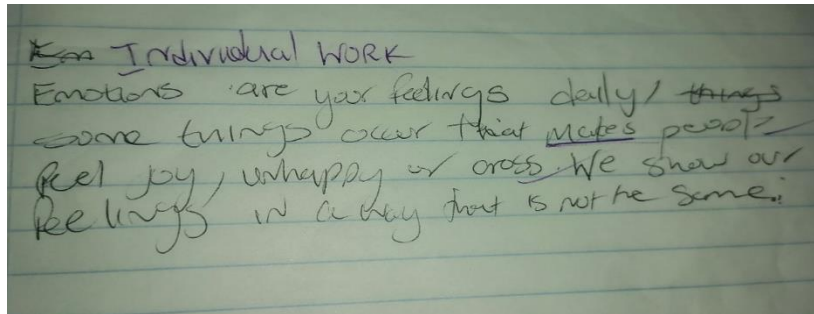 Individual WORK
Emotions are your feelings daily, things
some things occur that makes people
feel joy, unhappy or cross. We show our
feelings in a way that is not the same.